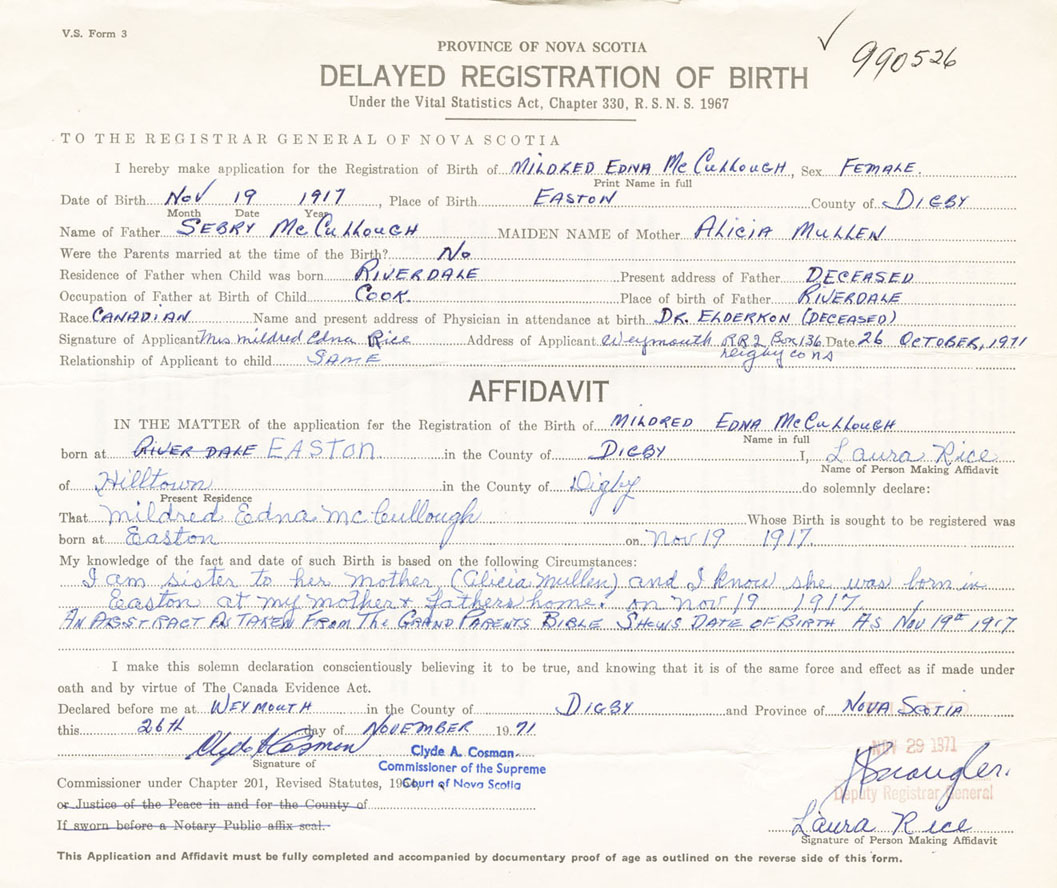 V.S. Form 3
990526
PROVINCE OF NOVA SCOTIA
DELAYED REGISTRATION OF BIRTH
Under the Vital Statistics Act, Chapter 330, R. S. N. S. 1967
TO THE REGISTRAR GENERAL OF NOVA SCOTIA
I hereby make application for the Registration of Birth of MILDRED EDNA McCULLOUGH, Sex FEMALE.
Print Name in full
Date of Birth Nov 19 1917, Place of Birth EASTON County of DIGBY
Month Date Year
Name of Father SEBRY McCULLOUGH MAIDEN NAME of Mother ALICIA MULLEN
Were the Parents married at the time of the Birth? No
Residence of Father when Child was born RIVERDALE Present address of Father DECEASED
Occupation of Father at Birth of Child COOK Place of birth of Father RIVERDALE
Race CANADIAN Name and present address of Physician in attendance at birth DR. ELDERKON (DECEASED)
Signature of Applicant Mrs mildred Edna Rice Address of Applicant Weymouth RR2 Box 136 Date 26 OCTOBER, 1971
Relationship of Applicant to child SAME
AFFIDAVIT
IN THE MATTER of the application for the Registration of the Birth of MILDRED EDNA McCULLOUGH
Name in full
born at RIVER DALE EASTON. in the County of DIGBY I, Laura Rice
Name of Person Making Affidavit
of Hilltown in the County of Digby do solemnly declare:
Present Residence
That Mildred Edna mc Cullough Whose Birth is sought to be registered was
born at Easton on Nov 19 1917.
My knowledge of the fact and date of such Birth is based on the following Circumstances:
I am sister to her mother (Alicia Mullen) and I know she was born in
Easton at my mother + fathers home. on nov 19 1917.
AN ABSTRACT AS TAKEN FROM THE GRAND PARENTS BIBLE SHOWS DATE OF BIRTH AS NOV 19th 1917
I make this solemn declaration conscientiously believing it to be true, and knowing that it is of the same force and effect as if made under
oath and by virtue of The Canada Evidence Act.
Declared before me at WEYMOUTH in the County of DIGBY and Province of NOVA SCOTIA
this 26th day of NOVEMBER 1971
Clyde A Cosman
Signature of
Clyde A. Cosman
Commissioner of the Supreme
Court of Nova Scotia
NOV 29 1971
Deputy Registrar General
Commissioner under Chapter 201, Revised Statutes,
or Justice of the Peace in and for the County of
If sworn before a Notary Public affix seal.
Laura Rice
Signature of Person Making Affidavit
This Application and Affidavit must be fully completed and accompanied by documentary proof of age as outlined on the reverse side of this form.